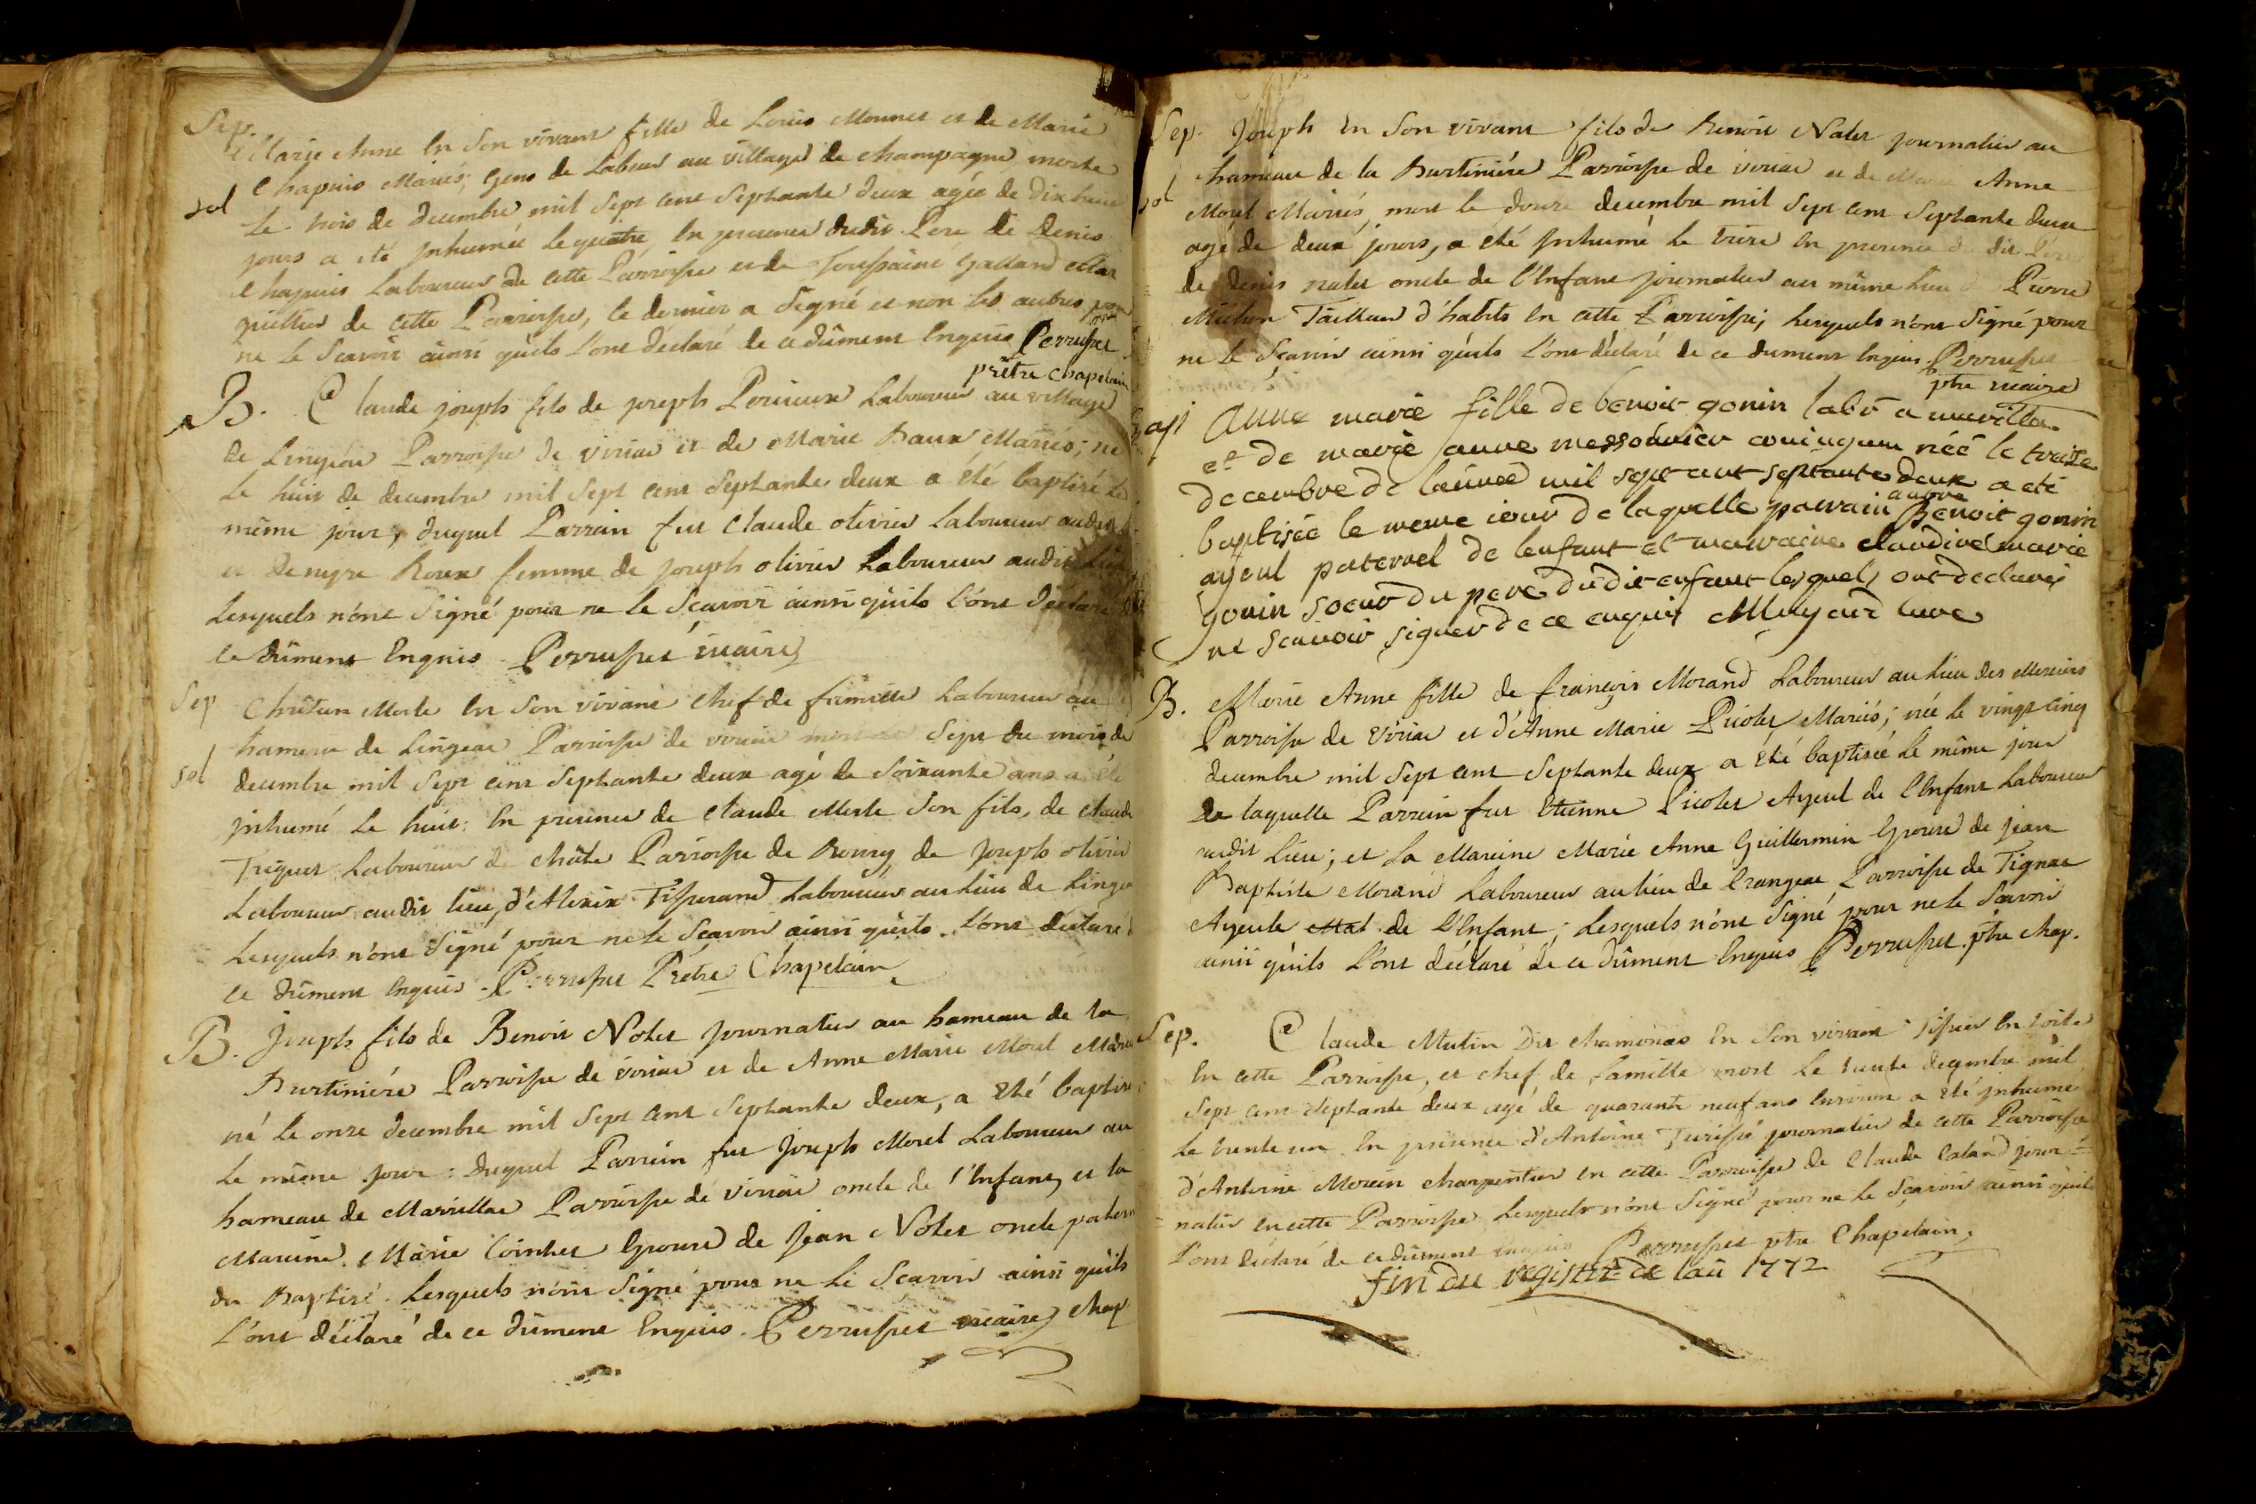 Sep.
Marie Anne En Son vivant fille de Louis Monnet et de Marie
Chapuis Mariés; gens de Labeur au village de Champagne, morte
sol
Le trois de decembre mil Sept cent Septante deux agée de dix huit
jours a été Jnhumée le quatre En presence dudit Pere de Denis
Chapuis Laboureur de cette Parroisse et de Toussaint Galland
guillier de cette Parroisse, le dernier a Signé et non les autres pour
ne le Scavoir ainsi quils L'ont déclaré de ce dûment Enquis Perrusset
prêtre Chapelain
B. Claude joseph fils de joseph Perrieux Laboureur au village
de Lingeat Parroisse de viriat et de Marie Baux Mariés; né
Le huit de decembre mil Sept cent Septante deux a été baptisé Le
même jour, duquel Parrain fut Claude olivier Laboureur audit
et denyse Roux femme de joseph olivier Laboureur audit Lieu
Lesquels n'ont Signé pour ne le Scavoir ainsi quils l'ont déclaré
ce dûment Enquis. Perrusset vicaire
Sep
Chrétien Merle En Son vivant chef de famille Laboureur au
hameau de Lingeat Parroisse de viriat mort Le Sept du mois de
sol
decembre mil Sept cent Septante deux agé de Soixante ans a été
jnhumé Le huit: En presence de Claude Merle Son fils, de Claude
Triquet Laboureur de châte Parroisse de Bourg de Joseph olivier
Laboureur audit lieu, d'Alexix Tisserand Laboureur au Lieu de Lingeat
Lesquels n'ont Signé pour ne le Scavoir ainsi quils L'ont déclaré
ce dûment Enquis. Perrusset Prêtre Chapelain
B. Joseph fils de Benoit Nolet journalier au hameau de la
Burtiniére Parroisse de viriat et de Anne Marie Morel Mariés
né Le onze decembre mil Sept Cent Septante deux, a Eté baptisé
Le même jour: Duquel Parrain fut Joseph Morel Laboureur au
hameau de Marvillat Parroisse de viriat oncle de l'Enfant, et la
Mareine. Marie Cointet Epouse de Jean Nolet oncle patern
du Baptisé. Lesquels n'ont Signé pour ne le Scavoir ainsi quils
L'ont déclaré de ce dûment Enquis. Perrusset vicaire chap
Sep. Joseph En Son vivant fils de Benoit Nolet journalier au
hameau de la Burtiniére Parroisse de viriat et de Marie Anne
sol
Morel Mariés, mort le douze decembre mil Sept cent Septante deux
agé de deux jours, a eté Jnhumé le treize En presence du dit Père
de denis nolet oncle de l'Enfant journalier au même lieu de Pierre
Michon Tailleur d'habits En cette Parroisse; Lesquels n'ont Signé pour
ne le Scavoir ainsi quils L'ont déclaré de ce dument Enquis. Perrusset
ptre vicaire
Bap Anne marie fille de benoit gonin labr a marvilla
et de marie anne messonnier coniugum née le treize
decembre de l'année mil sept cent septante deux a eté
baptisée le meme iour de laquelle parrain Benoit gonin
ayeul paternel de lenfant et marraine claudine marie
gonin soeur du pere dudit enfant lesquels ont declarés
ne scavoir signer de ce enquis Meynard cure
B. Marie Anne fille de françois Morand Laboureur au Lieu des Merciers
Parroisse de Viriat et d'Anne Marie Picolet Mariés; née le vingt Cinq
decembre mil Sept cent Septante deux a Eté baptisée Le même jour
De laquelle Parrain fut Etienne Picolet Ayeul de l'Enfant Laboureur
audit Lieu; et La Mareine Marie Anne Guillermin Epouse de jean
Baptiste Morand Laboureur au lieu de Crangeat Parroisse de Tignat
Ayeule Mat de L'Enfant; Lesquels n'ont Signé pour ne le Scavoir
ainsi quils L'ont déclaré de ce dûment Enquis Perrusset ptre chap.
Sep. Claude Mutin Dit chamonas En Son vivant Tissier En toile
En cette Parroisse, et chef de famille mort Le trente decembre mil
Sept cent Septante deux agé de quarante neuf ans Environ a été jnhumé
Le trente un En présence d'Antoine Turissé journalier de cette Parroisse
d'Antoine Morein charpentier En cette Parroisse de Claude Caland jour-
nalier En cette Parroisse Lesquels n'ont Signé pour ne le Scavoir ainsi quils
L'ont déclaré de ce dûment Enquis Perrusset ptre Chapelain.
fin du registre de lan 1772